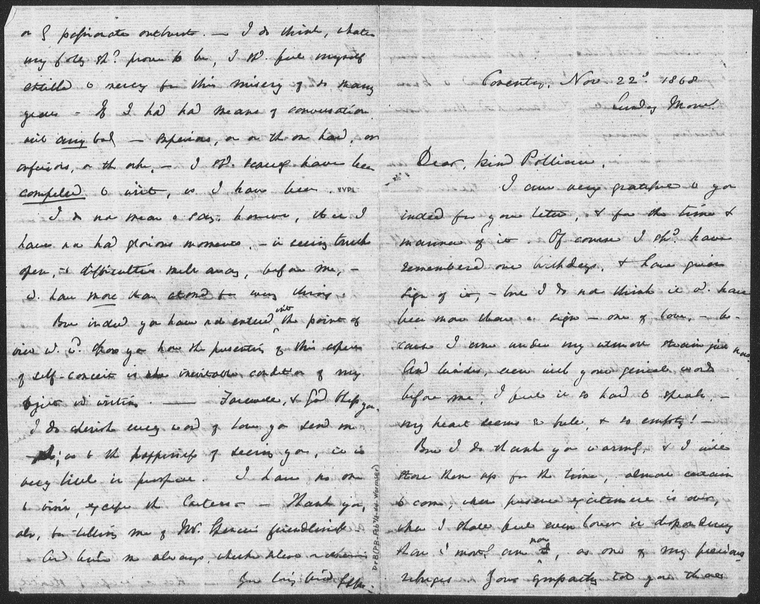 Coventry, Nov. 22d 1868
Sunday Morng
Dear, kind Pollian.
I am very grateful to you
indeed for your letter, & for the time &
manner of it. Of course I shd have
remembered our birthdays, & have given
sign of it, – but I do not think it wd have
been more than a sign – one of love, – be-
cause I am under my utmost strain just now.
And besides, even with your genial words
before me, I feel it so hard to speak. –
my heart seems so full, & so empty! –
But I do thank you warmly, & I will
store them up for the time, almost certain
to come, when present excitement is over,
when I shall feel even lower in despondency
than I most am now, as one of my precious
refuges. Your sympathy told you there
or passionate outburst. – I do think, whate
my folly shd prove to be, I shd feel myself
entitled to mercy for this misery of so many
years – If I had had means of conversation
with any body – superiors, on the one hand, or
inferiors, on the other, – I shd scarcely have been
compelled to write, as I have been.
I do not mean to say, however, that I
have not had glorious moments, – in seeing truth
open, & difficulties melt away, before me, –
wd have more than atoned for every thing.
But indeed you have not entered into the point of
view
how the presenting of this aspect
of self-conceit is the inevitable condition of my
in writing. — Farewell, & God bless you.
I do cherish every word of love you send me
as to the happiness of seeing you, it is
very little in prospect. I have no one
to visit, except the Carters – Thank you,
also, for telling me of Mr. Spencer's friendliness
And believe me always,
Your loving friend